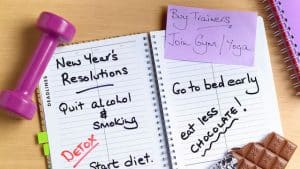 Buy Trainers,
Join Gym/Yoga
DEADLINES
New Year's
Resolutions
Quit alcohol
&
Smoking
DETOX
Start diet.
Go to bed early
eat less
CHOCOLATE!